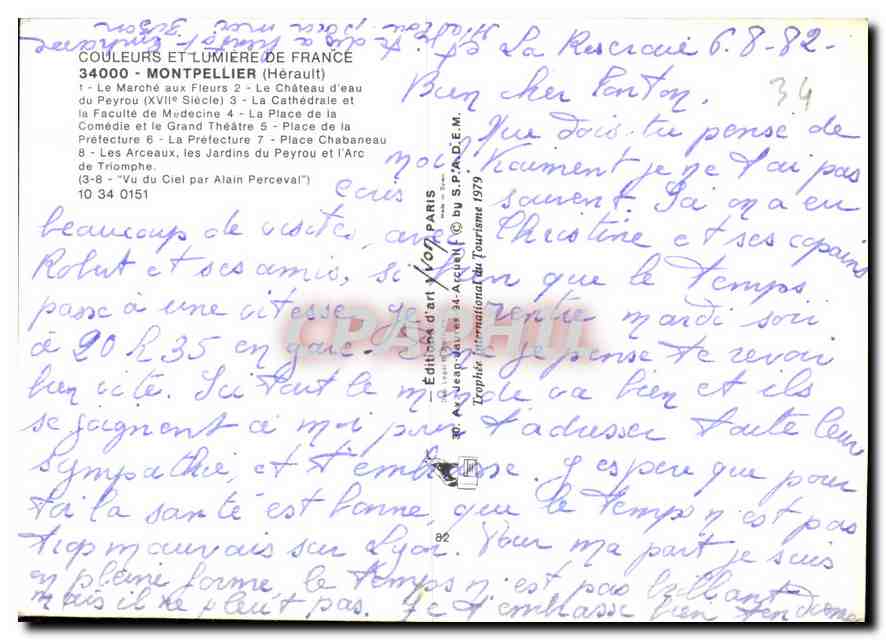 COULEURS ET LUMIÈRE DE FRANCE
34000 - MONTPELLIER (Hérault)
1 - Le Marché aux Fleurs 2 - Le Château d'eau
du Peyrou (XVIIe Siècle) 3 - La Cathédrale et
la Faculté de Médecine 4 - La Place de la
Comédie et le Grand Théâtre 5 - Place de la
Préfecture 6 - La Préfecture 7 - Place Chabaneau
8 - Les Arceaux, les Jardins du Peyrou et l'Arc
de Triomphe.
(3-8 - "Vu du Ciel par Alain Perceval")
10 34 0151
6.8-82-
34
Bien cher Tonton,
Que dois-tu pensé de
moi! Vraiment je ne t'ai pas
écris souvent. Ici on a eu
beaucoup de visites, avec Christine et ses copains
Robert et ses amis, si bien que le temps
passe à une vitesse. Je rentre mardi soir
à 20 h 35 en gare. je pense te revoir
bien vite. Ici tout le monde va bien et ils
se joignent à moi pour t'adresser toute leur
sympathie, et t'embrasse. J'espère que pour
toi la santé est bonne, que le temps n'est pas
trop mauvais sur Lyon. Pour ma part je suis
en pleine forme, le temps n'est pas brillant
mais il ne pleut pas. Je t'embrasse bien tendrement
te dis à bientôt
— Éditions d'art YVON PARIS
30, Av. Jean-Jaurès 94-Arcueil © by S.P.A.D.E.M.
Trophée International du Tourisme 1979
82
CPAPHIL